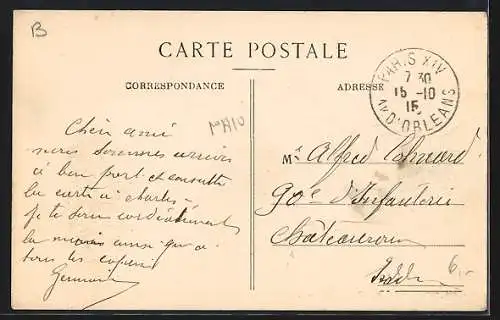 B
CARTE POSTALE
CORRESPONDANCE
ADRESSE
PARIS XIV
7 30
15 -10
15
AV. D'ORLEANS
Cher ami
nous sommes arrivés
à bon port et
la carte à Charles
je te serre cordialement
la ainsi qu'à
tous les copains
Germain
Mr Alfred
90e d'Infanterie
Châteauroux
Indre
6,-